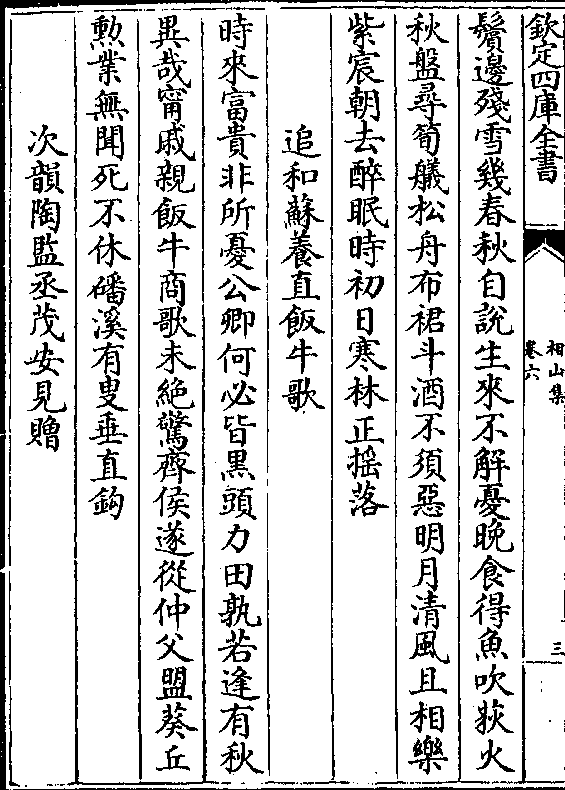 欽定四庫全書
相山集
卷六
三
鬢邊殘雪幾春秋自說生來不解憂晚食得魚吹荻火
秋盤尋筍艤松舟布裙斗酒不須惡明月清風且相樂
紫宸朝去醉眠時初日寒林正揺落
追和蘇養直飯牛歌
時來富貴非所憂公卿何必皆黒頭力田孰若逢有秋
異哉甯戚親飯牛商歌未絶驚齊侯遂從仲父盟葵丘
勲業無聞死不休磻溪有叟垂直鈎
次韻陶監丞茂安見贈